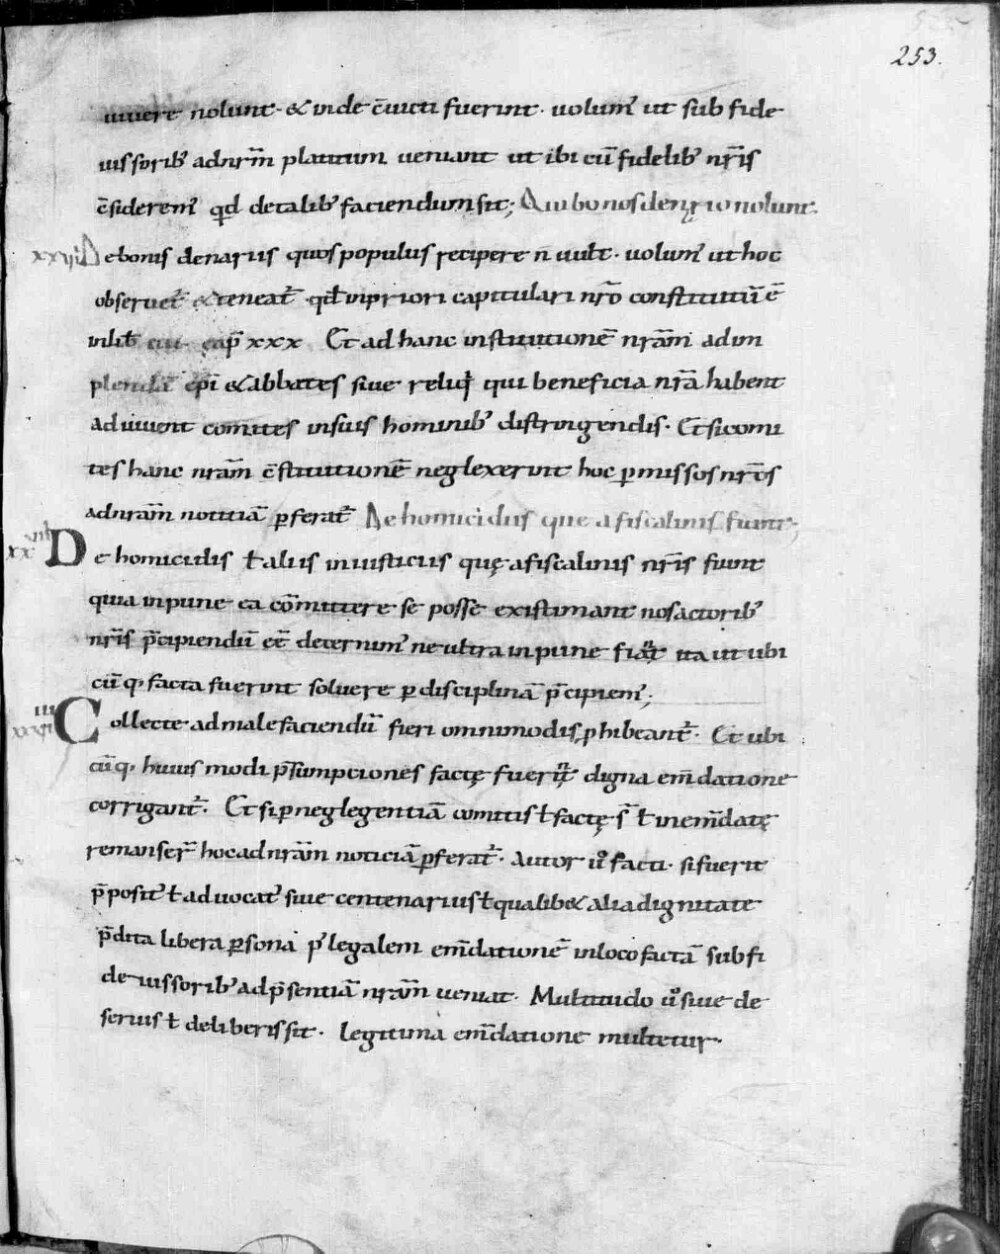 253.
uiuere nolunt · & inde c̄uicti fuerint · uolum᾽ ut sub fide
iussorib᾽ ad nr̄m placitum ueniant ut ibi cū fidelib᾽ nr̄is
c̄siderem᾽ qd̄ de talib᾽ faciendum sit; Qui bonos denario nolunt.
De bonis denariis quos populus recipere n̄ uult · uolum᾽ ut hoc
obseruet᾽ & teneat᾽ · qd̄ in priori capitulari nr̄o constitutū ē
in lib̄ cap̄ xxx Et ad hanc institutionē nr̄am adim
plendā ep̄i & abbates siue reliq̄ qui beneficia nr̄a habent
adiuuent comites in suis hominib᾽ distringendis · Et si comi
tes hanc nr̄am c̄stitutionē neglexerint hoc p̱ missos nr̄os
ad nr̄am notitiā p̱ferat᾽ De homicidiis que a fiscalinis fiunt;
xxuii De homicidiis ł aliis iniusticiis quę a fiscalinis nr̄is fiunt
quia inpune ea cōmittere se posse existimant nos actorib᾽
nr̄is p̄cipiendū eē decernim᾽ ne ultra inpune fiant ita ut ubi
cūq· facta fuerint soluere p̱ disciplinā p̄cipiem᾽;
Collecte ad male faciendū fieri omnimodis p̱hibeant᾽ · Et ubi
cūq· huius modi p̄sumptiones factę fuerint digna em̄datione
corrigant᾽ · Et si p̱ neglegentiā comitis ł factę s᾽ ł inem̄datę
remanser᾽ hoc ad nr̄am noticiā p̱ferat᾽ · Autor u᷎o facti · si fuerit
p̄posit᾽ ł aduocat᾽ siue centenarius ł qualib& alia dignitate
p̄dita libera p̱sona p᾽ legalem em̄dationē in loco factā sub fi
deiussorib᾽ ad p̄sentiā nr̄am ueniat · Multitudo u᷎o siue de
seruis ł de liberis sit · legitima em̄datione multetur ·